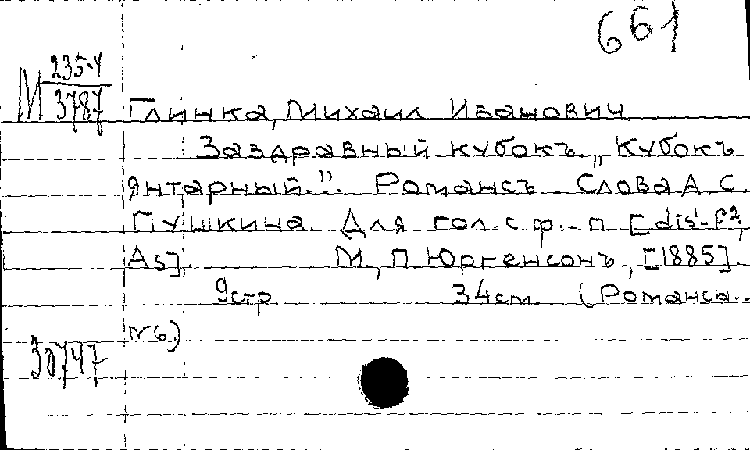 661
М 235-4
3787
Глинка, Михаил Иванович
Заздравный кубокъ. „Кубокъ
янтарный". Романсъ. Слова А. С.
Пушкина. Для гол. с ф.-п. [dis'-f²,
As]. М., П. Юргенсонъ, [1885].
9 стр. 34 см. (Романсы.
№ 6.)
30747